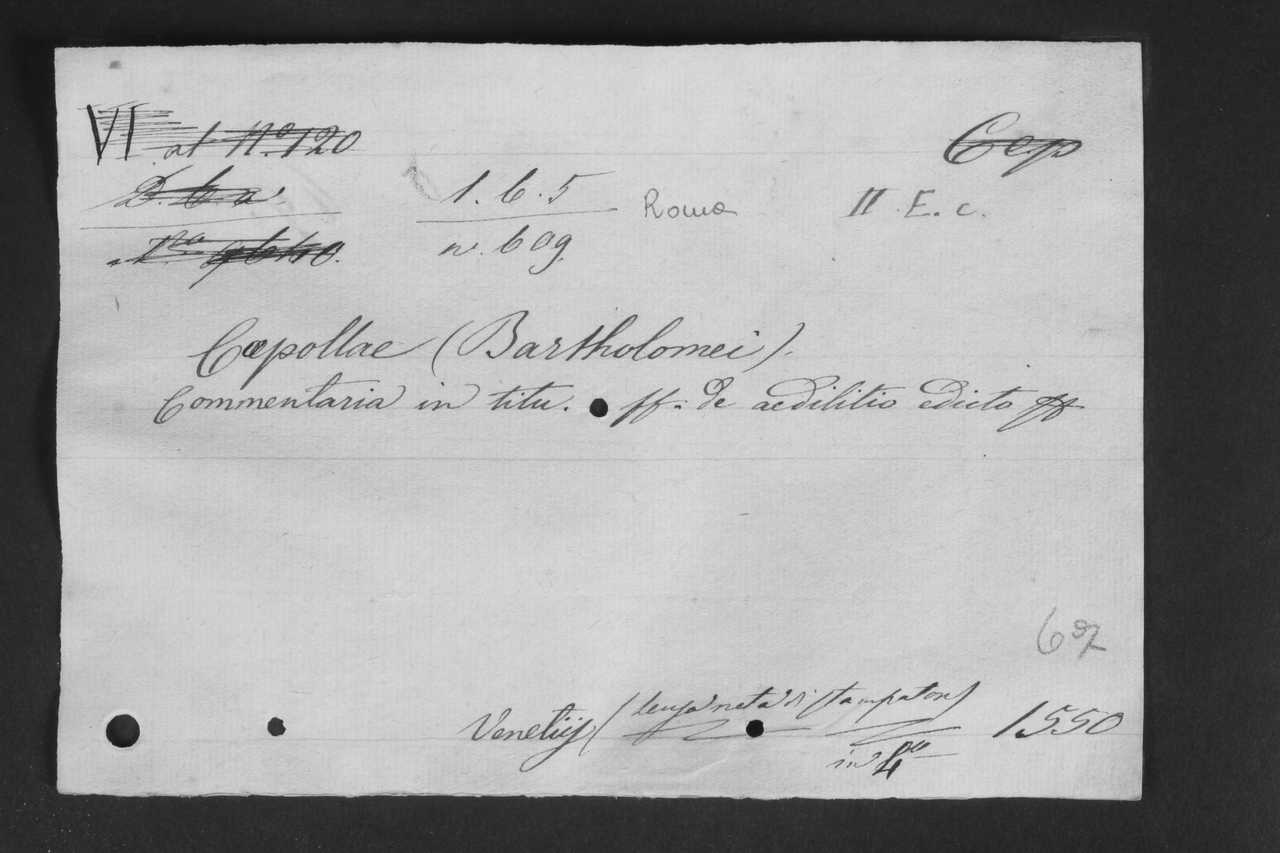 VI al N.º 120
Cep
D. b a
1. 6. 5
Roma
II E. c.
n. 609
Caepollae (Bartholomei).
Commentaria in titu. ff. de aedilitio edicto ff
Venetijs (senza nota di stampatore) 1550
in 4to